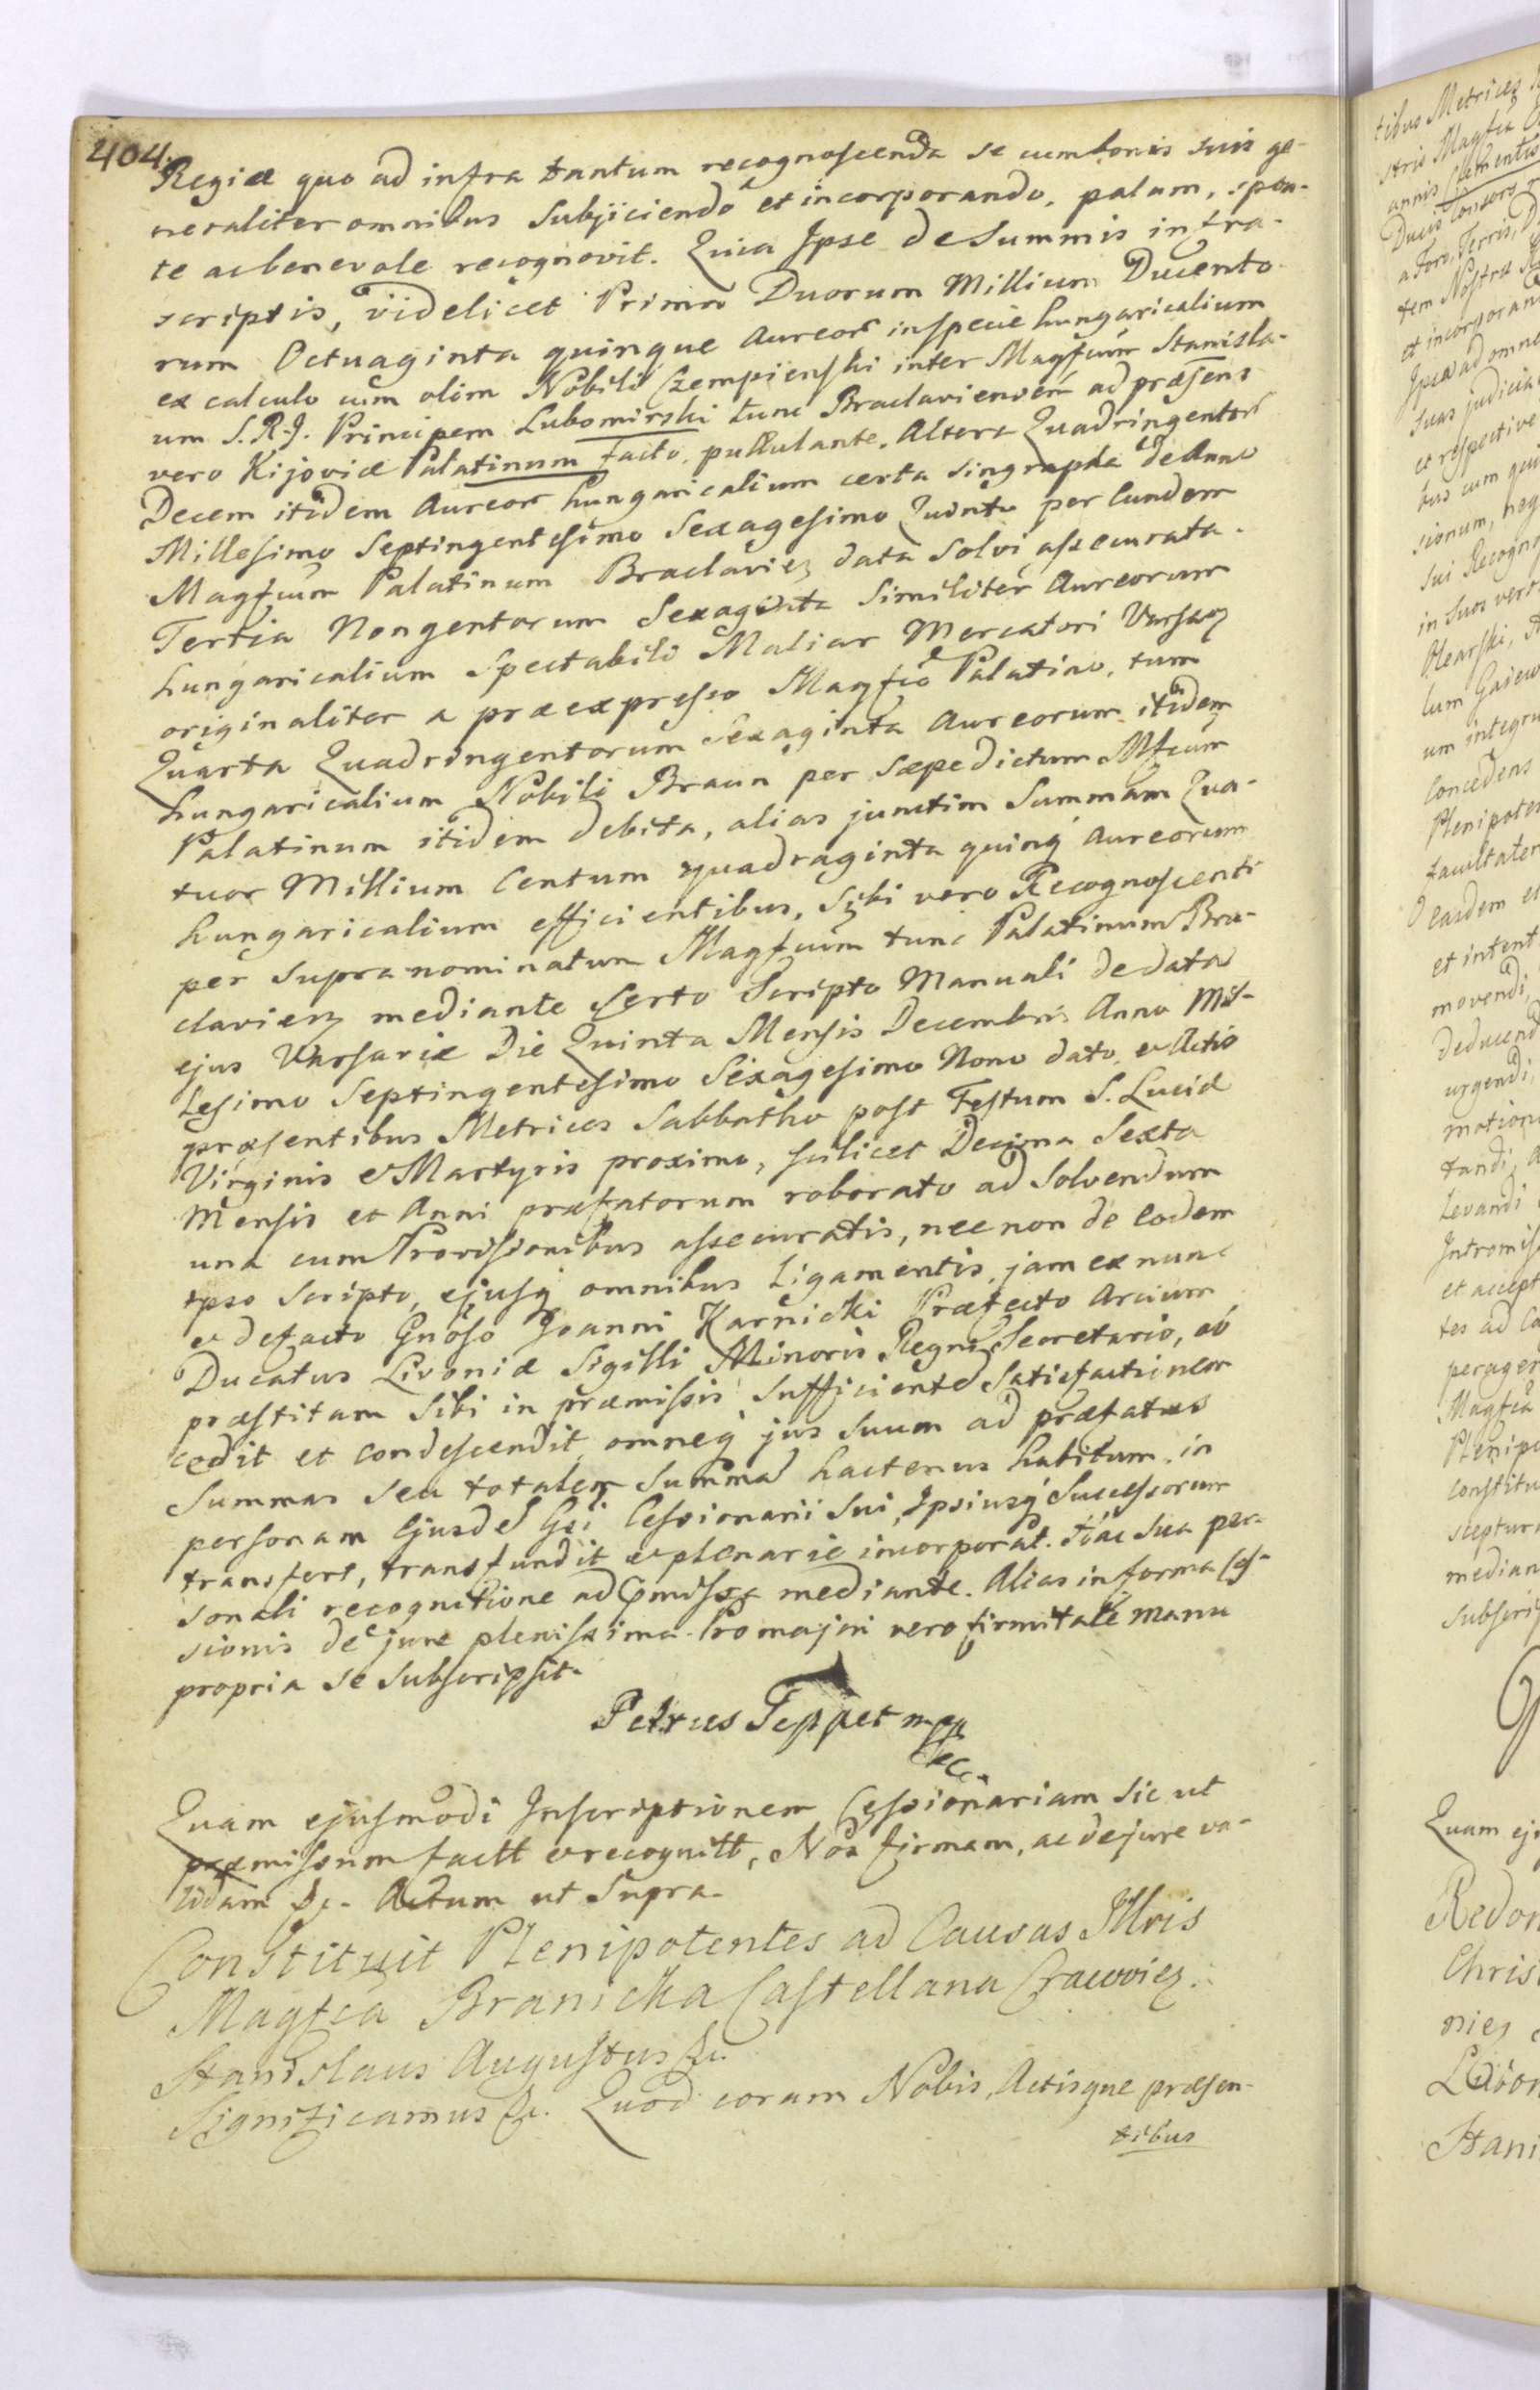 404.
Regiæ quo ad infra tantum recognoscenda se cum bonis suis ge-
neraliter omnibus subjiciendo et incorporando, palam, spon-
te ac benevole recognovit. Quia Ipse de Summis infra-
scriptis, videlicet Primo Duorum Millium Ducento-
rum Octuaginta quinque Aureor in specie hungaricalium
ex calculo cum olim Nobili Czempienski inter Magfcum Stanisla-
um S.R.J. Principem Lubomirski tunc Braclaviensem ad præsens
vero Kijoviæ Palatinum facto, pullulante. Altera Quadringentor
Decem itidem Aureor hungaricalium certa singrapha de Anno
Millesimo Septingentesimo Sexagesimo Quinto per Eundem
Magfcum Palatinum Braclavien data solvi assecurata.
Tertia Nongentorum Sexaginta similiter Aureorum
hungaricalium Spectabili Maliar Mercatori Varsav
originaliter a præexpresso Magfco Palatino, tum
Quarta Quadringentorum Sexaginta Aureorum itidem
hungaricalium Nobili Braun per sæpedictum Mfcum
Palatinum itidem debita, alias junctim Summam Qua-
tuor Millium Centum quadraginta quinq Aureorum
hungaricalium efficientibus, sibi vero Recognoscenti
per supranominatum Magfcum tunc Palatinum Bra-
clavien mediante certo Scripto Manuali de data
ejus Varsaviæ Die Quinta Mensis Decembris Anno Mil-
lesimo Septingentesimo Sexagesimo Nono dato, & Actis
præsentibus Metrices Sabbatho post Festum S. Luciæ
Virginis & Martyris proximo, scilicet Decima Sexta
Mensis et Anni præfatorum roborato ad solvendum
una cum Provisionibus assecuratis, nec non de Eodem
ipso Scripto, ejusq omnibus Ligamentis, jam ex nunc
& de facto Gnoso Joanni Karnicki Præfecto Arcium
Ducatus Livoniæ Sigilli Minoris Regni Secretario, ob
præstitam sibi in præmissis sufficientem Satisfactionem
cedit et condescendit, omneq jus suum ad præfatas
Summas seu totalem Summam hactenus habitum, in
personam Ejusdem Gsi Cessionarii sui, Ipsiusq Successorum
transfert, transfundit & plenarie incorporat. Hac sua per-
sonali recognitione ad præmissa mediante. Alias in forma Ces-
sionis de jure plenissima. Pro majori vero firmitate manu
propria se subscripsit.
Petrus Tepper mpp
Quam ejusmodi Inscriptionem Cessionariam sic ut
præmissum factt & recognitt, Nos firmam, ac de jure va-
lidam &c. Actum ut Supra.
Constituit Plenipotentes ad Causas Illris
Magfca Branicka Castellana Cracovien.
Stanislaus Augustus &c.
Significamus &c. Quod coram Nobis, Actisque præsen-
tibus
tibus Metrices
stris Magfca
annis Clementis
Ducis Consors
a Foro, Terris,
tem Nostræ
et incorporan
Ipsa ad omne
suas judicia
et respective
bus cum qui
sionum, neg
sui Recogno
in suos vert
Olearski,
lum Gajew
um integru
Concedens
Plenipote
facultatem
easdem et
et intent
movendi,
deducend
urgendi,
motion
tandi,
Levandi
Intromis
et accept
tes ad Ca
perager
Magfca
Plenipo
constitu
scriptur
median
subscrip
Quam ej
Redon
Chris
nien
Stani